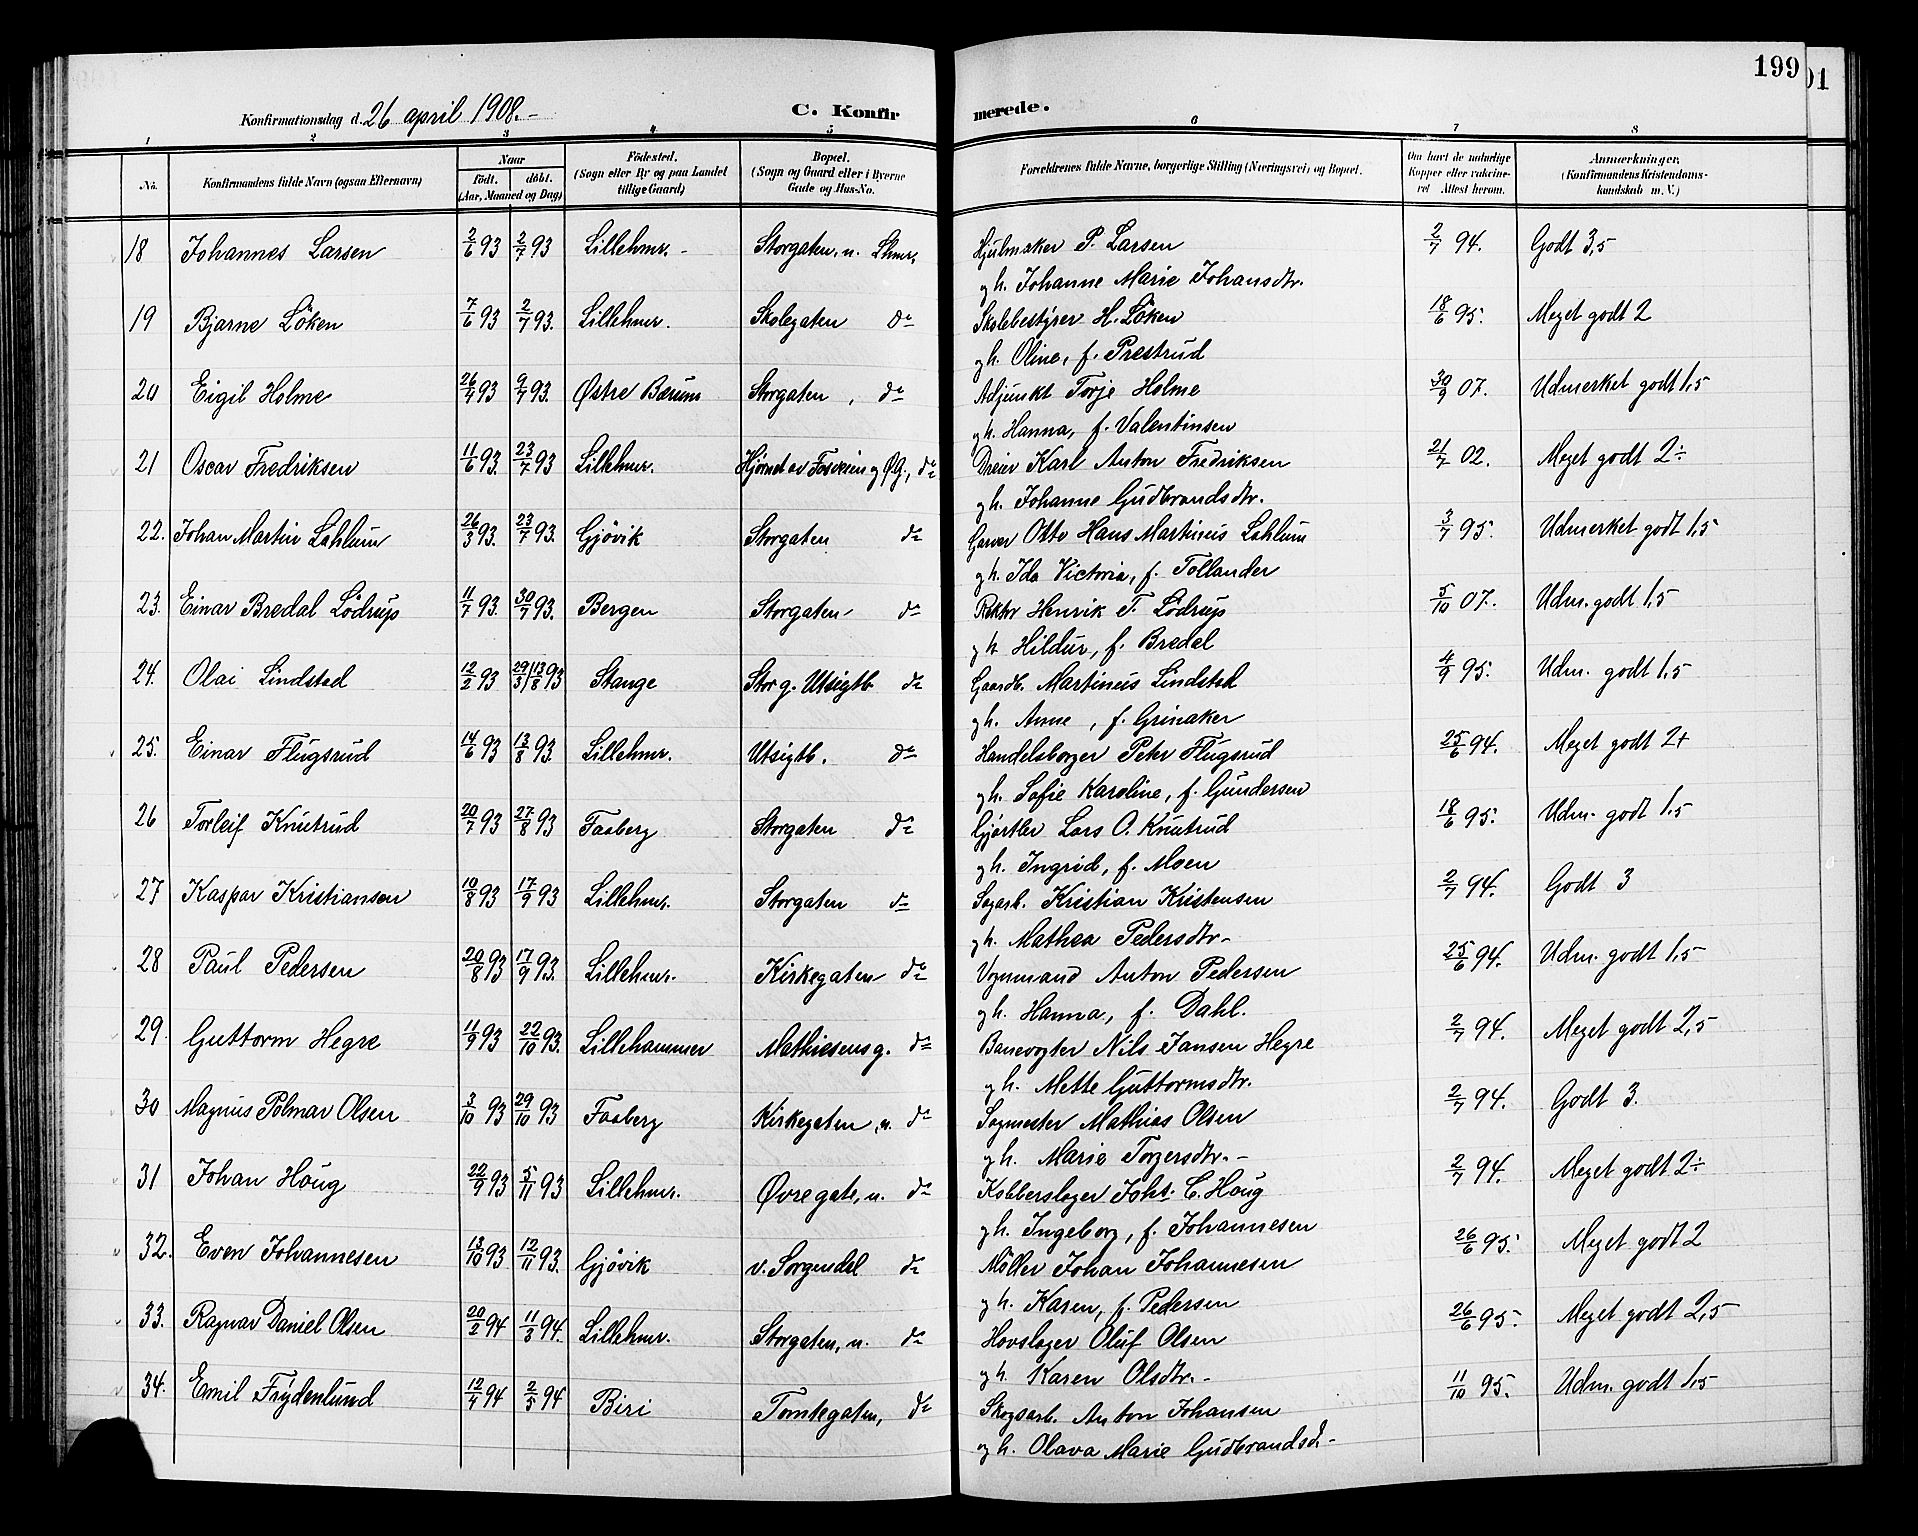 199
01
Konfirmationsdag d. 26 april 1908.-
C. Konfirmerede.
1 2 3 4 5 6 7 8
No. Konfirmandens fulde Navn (ogsaa Efternavn) Naar Födt. döbt. (Aar, Maaned og Dag) Födested. (Sogn eller By og paa Landet tillige Gaard) Bopæl. (Sogn og Gaard eller i Byerne Gade og Hus-No. Forældrenes fulde Navne, borgerlige Stilling (Næringsvei) og Bopæl. Om havt de naturlige Kopper eller vaccineret Attest herom. Anmærkninger. (Konfirmandens Kristendomskundskab m. V.)
18 Johannes Larsen 2/6 93 2/7 93 Lillehmr. - Storgaten, n. Lhmr. Hjulmaker P. Larsen 2/7 94. Godt 3,5
g h. Johanne Marie Johansdtr.
19 Bjarne Löken 7/6 93 2/7 93. Lillehmr. Skolegaten do Skolebestyrer H. Löken 18/6 95. Meget godt 2
g h. Oline, f. Prestrud
20 Eigil Holme 26/4 93 9/7 93. Østre Bærum Storgaten, do Adjunkt Torje Holme 30/9 07. Udmerket godt 1,5
g h. Hanna, f. Valentinsen
21 Oscar Fredriksen 11/6 93. 23/7 93 Lillehmr. Hjörnet av Fosveien og Ø.G., do Dreier Karl Anton Fredriksen 21/7 02. Meget godt 2÷
g h. Johanne Gudbrandsdtr.
22. Johan Martin Lahlum 26/3 93. 23/7 93. Gjövik Storgaten do Garver Otto Hans Martinus Lahlum 3/7 95. Udmerket godt 1,5
g h. Ida Victoria, f. Tollander
23. Einar Bredal Lödrup 11/7 93. 30/7 93. Bergen Storgaten do Rektor Henrik T. Lödrup 5/10 07. Udm. godt 1,5
g h Hildur, f. Bredal
24. Olai Lindstad 12/2 93 29/3 13/8 93 Stange Storg. Utsigtb. do Gaardb. Martinus Lindstad 4/9 95. Udm. godt 1,5
g h. Anne, f. Grinaker
25. Einar Flugsrud 14/6 93 13/8 93. Lillehmr. Utsigtb. do Handelsborger Peter Flugsrud 25/6 94. Meget godt 2+
g h. Sofie Karoline, f. Gundersen
26 Torleif Knutrud 20/7 93 27/8 93 Faaberg Storgaten do Gjørtler Lars O. Knutrud 18/6 95. Udm. godt 1,5
g h. Ingrid, f. Moen
27 Kaspar Kristiansen 10/8 93 17/9 93 Lillehmr. Storgaten do Sagarb. Kristian Kristensen 2/7 94. Godt 3
g h. Mathea Pedersdtr-
28 Paul Pedersen 20/8 93 17/9 93. Lillehmr. Kirkegaten do Vognmand Anton Pedersen 25/6 94. Udm. godt 1,5
g h. Hanna, f. Dahl.
29. Guttorm Hegre 11/9 93 22/10 93. Lillehammer Mathiesens g. do Banevogter Nils Jansen Hegre 2/7 94. Meget godt 2,5
g h. Mette Guttormsdtr.
30 Magnus Polmar Olsen 3/10 93 29/10 93 Faaberg Kirkegaten, n. do Sagmester Mathias Olsen 2/7 94. Godt 3.
g h. Marie Torgersdtr.-
31 Johan Houg 22/9 93 5/11 93 Lillehmr. Øvregate, n. do Kobberslager Johs. C. Houg 2/7 94. Meget godt 2÷
g h. Ingeborg, f. Johannesen
32. Even Johannesen 13/10 93 12/11 93. Gjövik v. Sorgendal do Möller Johan Johannesen 26/6 95. Meget godt 2
g h. Karen, f. Pedersen
33. Ragnar Daniel Olsen 20/2 94 11/3 94. Lillehmr. Storgaten, n. do Hovslager Oluf Olsen 26/6 95. Meget godt 2,5
g h. Karen Olsdtr.-
34. Emil Frydenlund 12/4 94 2/5 94 Biri Tomtegaten, do Skogsarb. Anton Johansen 11/10 95. Udm. godt 1,5
og h. Olava Marie Gudbrandsd-